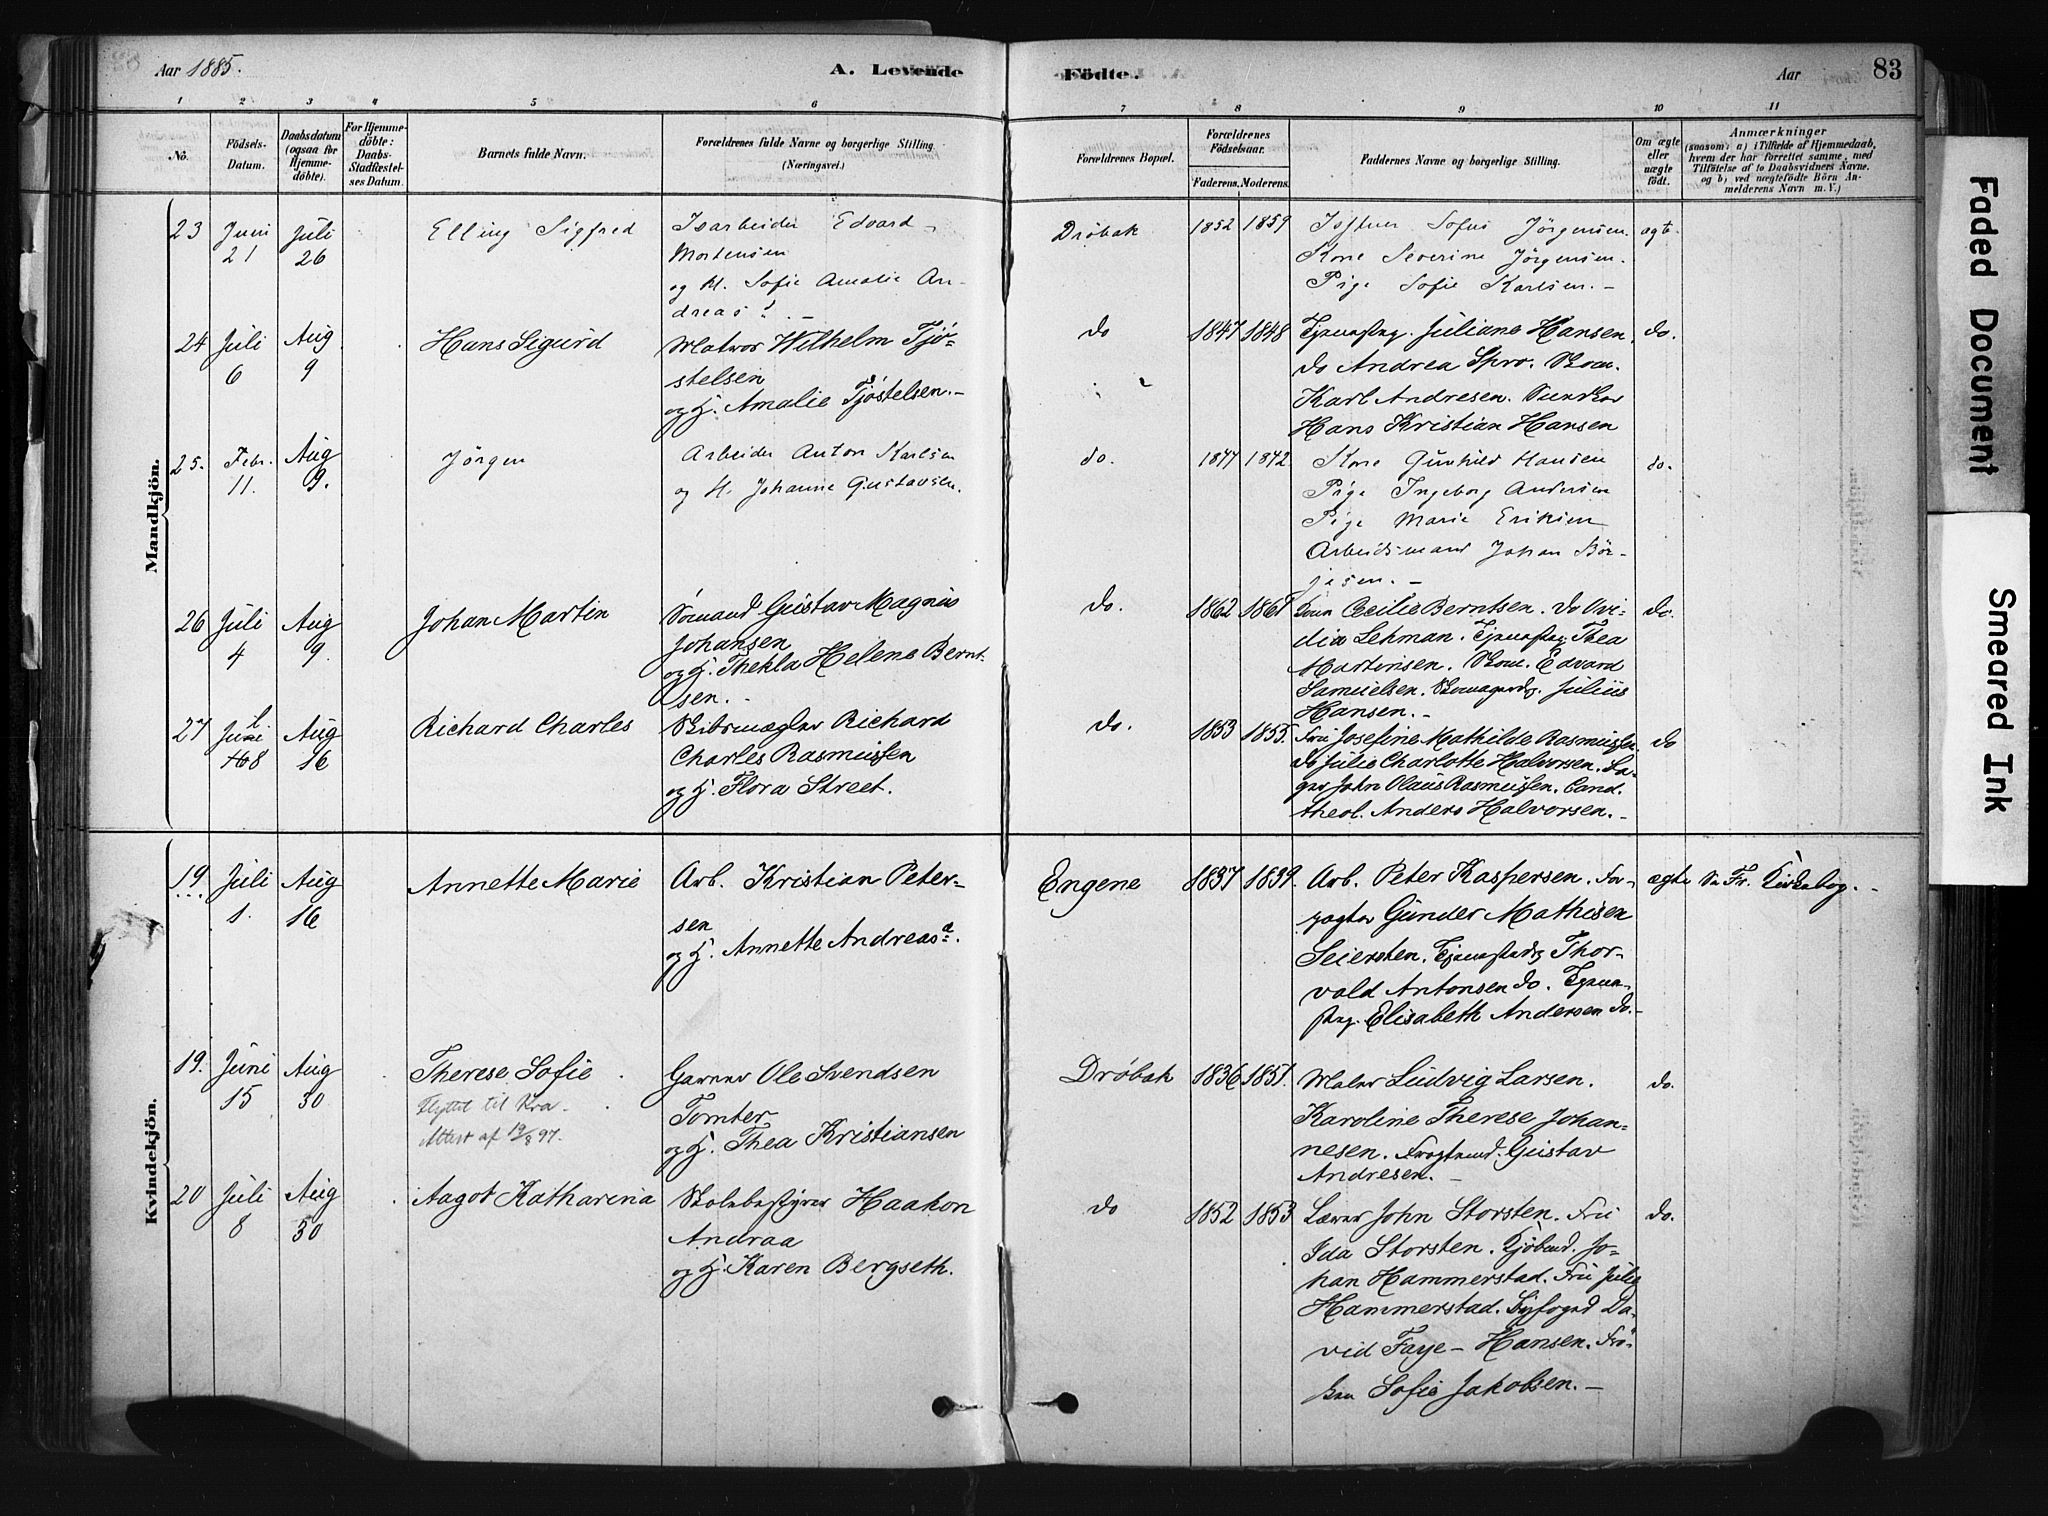 Aar 1885.
A. Levende
Födte.
Aar
83
1
2
3
4
5
6
7
8
9
10
11
No.
Födsels-
Datum.
Daabsdatum
(ogsaa for
Hjemme-
döbte).
For Hjemme-
döbte:
Daabs-
Stadfæstel-
ses Datum.
Barnets fulde Navn.
Forældrenes fulde Navne og borgerlige Stilling.
(Næringsvei.)
Forældrenes Bopæl.
Forældrenes
Födselsaar.
Faderens.
Moderens.
Faddernes Navne og borgerlige Stilling.
Om ægte
eller
uægte
födt.
Anmærkninger
(saasom: a) i Tilfælde af Hjemmedaab,
hvem der har forrettet samme, med
Tilföielse af to Daabsvidners Navne,
og b) ved uægtefödte Börn An-
melderens Navn m. V.)
Mandkjön.
23
Juni
21
Juli
26
Elling Sigfred
Isarbeider Edvard
Mortensen
og H. Sofie Amalie An-
dreasd. -
Dröbak
1852
1859
Sofus Jörgensen.
Kone Severine Jörgensen.
Pige Sofie Karlsen. -
ægte
24
Juli
6
Aug
9
Hans Sigurd
Matros Wilhelm Tjö-
stelsen
og H. Amalie Tjöstelsen. -
do
1847
1848
Tjenestpg. Juliane Hansen.
do Andrea Spro. Skom.
Karl Andresen. Snedker
Hans Kristian Hansen
do.
25.
Febr.
11.
Aug
9.
Jörgen
Arbeider Anton Karlsen
og H. Johanne Gustavsen.
do.
1847
1842
Kone Gunhild Hansen
Pige Ingeborg Andersen
Pige Marie Eriksen
Arbeidsmand Johan Bör-
jesen. -
do.
26
Juli
4
Aug
9.
Johan Martin
Sömand Gustav Magnus
Johansen
og H. Thekla Helene Bernt-
sen. -
do.
1862
1861
Cecilie Berntsen. do Ovi-
dia Lehman. Tjenestpg. Thea
Martinsen. Skom. Edvard
Samuelsen. Julius
Hansen. -
do.
27
Juli
8
Aug
16
Richard Charles
Skibsmægler Richard
Charles Rasmussen
og H. Flora Street.
do.
1853
1855.
Fru Josefine Mathilde Rasmussen.
do Julie Charlotte Halvorsen. Ba-
ger John Olaus Rasmussen. Cand.
theol. Anders Halvorsen. -
do
Kvindekjön.
19
Juli
1.
Aug
16
Annette Marie
Arb. Kristian Peter-
sen
og H. Annette Andreasd.
Engene
1837
1839.
Arb. Peter Kaspersen. For-
pagter Gunder Mathisen
Seiersten. Thor-
vald Antonsen do. Tjene-
stpg. Elisabeth Andersen do. -
ægte
Se Fr. Kirkebog. -
19.
Juni
15
Aug
30
Therese Sofie
Flyttet til Kra.
Attest af 19/8 97.
Garver Ole Svendsen
Tomter
og H. Thea Kristiansen
Dröbak
1836
1851.
Maler Ludvig Larsen.
Karoline Therese Johan-
nesen. Gustav
Andresen. -
do.
20
Juli
8
Aug
30
Aagot Katharina
Skolebestyrer Haakon
Andraa
og H. Karen Bergseth.
do
1852
1853
Lærer John Storsten. Fru
Ida Storsten. Kjöbmd. Jo-
han Hammerstad. Fru Julie
Hammerstad. Byfoged Da-
vid Faye-Hansen. Frö-
ken Sofie Jakobsen. -
do.
Faded Document
Smeared Ink